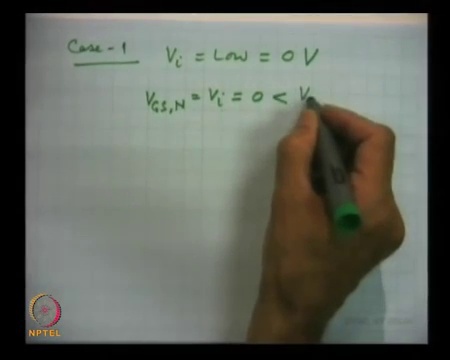 Case-1 Vi = Low = 0 V
VGS,N = Vi = 0 < V
NPTEL